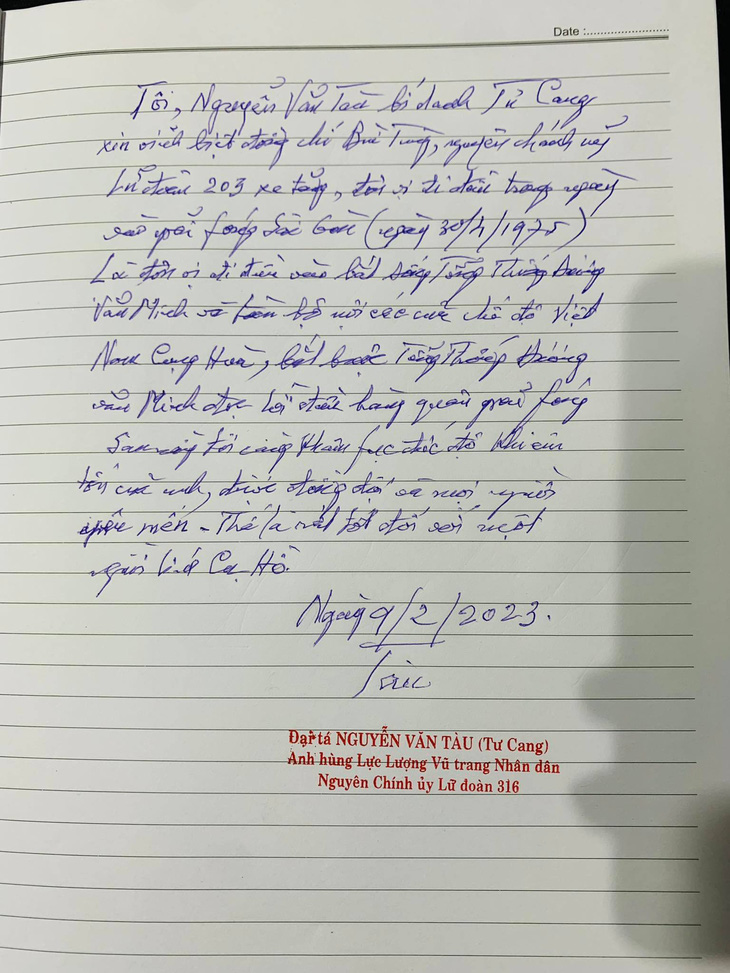 Date :
Tôi, Nguyễn Văn Tàu bí danh Tư Cang
xin vĩnh biệt đồng chí Bùi Tùng, nguyên chánh uỷ
Lữ đoàn 203 xe tăng, đơn vị đi đầu trong ngày
vào giải fóng Sài Gòn (ngày 30/4/1975)
Là đơn vị đi đầu vào bắt sống Tổng Thống Dương
Văn Minh và toàn bộ nội các của chế độ Việt
Nam Cộng Hoà, bắt buộc Tổng Thống Dương
văn Minh đọc lời đầu hàng quân giải fóng
Sau này tôi càng khâm fục thái độ khiêm
tốn của anh, được đồng đội và mọi người
yêu mến - Thế là rất tốt đối với một
người lính Cụ Hồ.
Ngày 9/2/2023.
Đại tá NGUYỄN VĂN TÀU (Tư Cang)
Anh hùng Lực Lượng Vũ trang Nhân dân
Nguyên Chính ủy Lữ đoàn 316